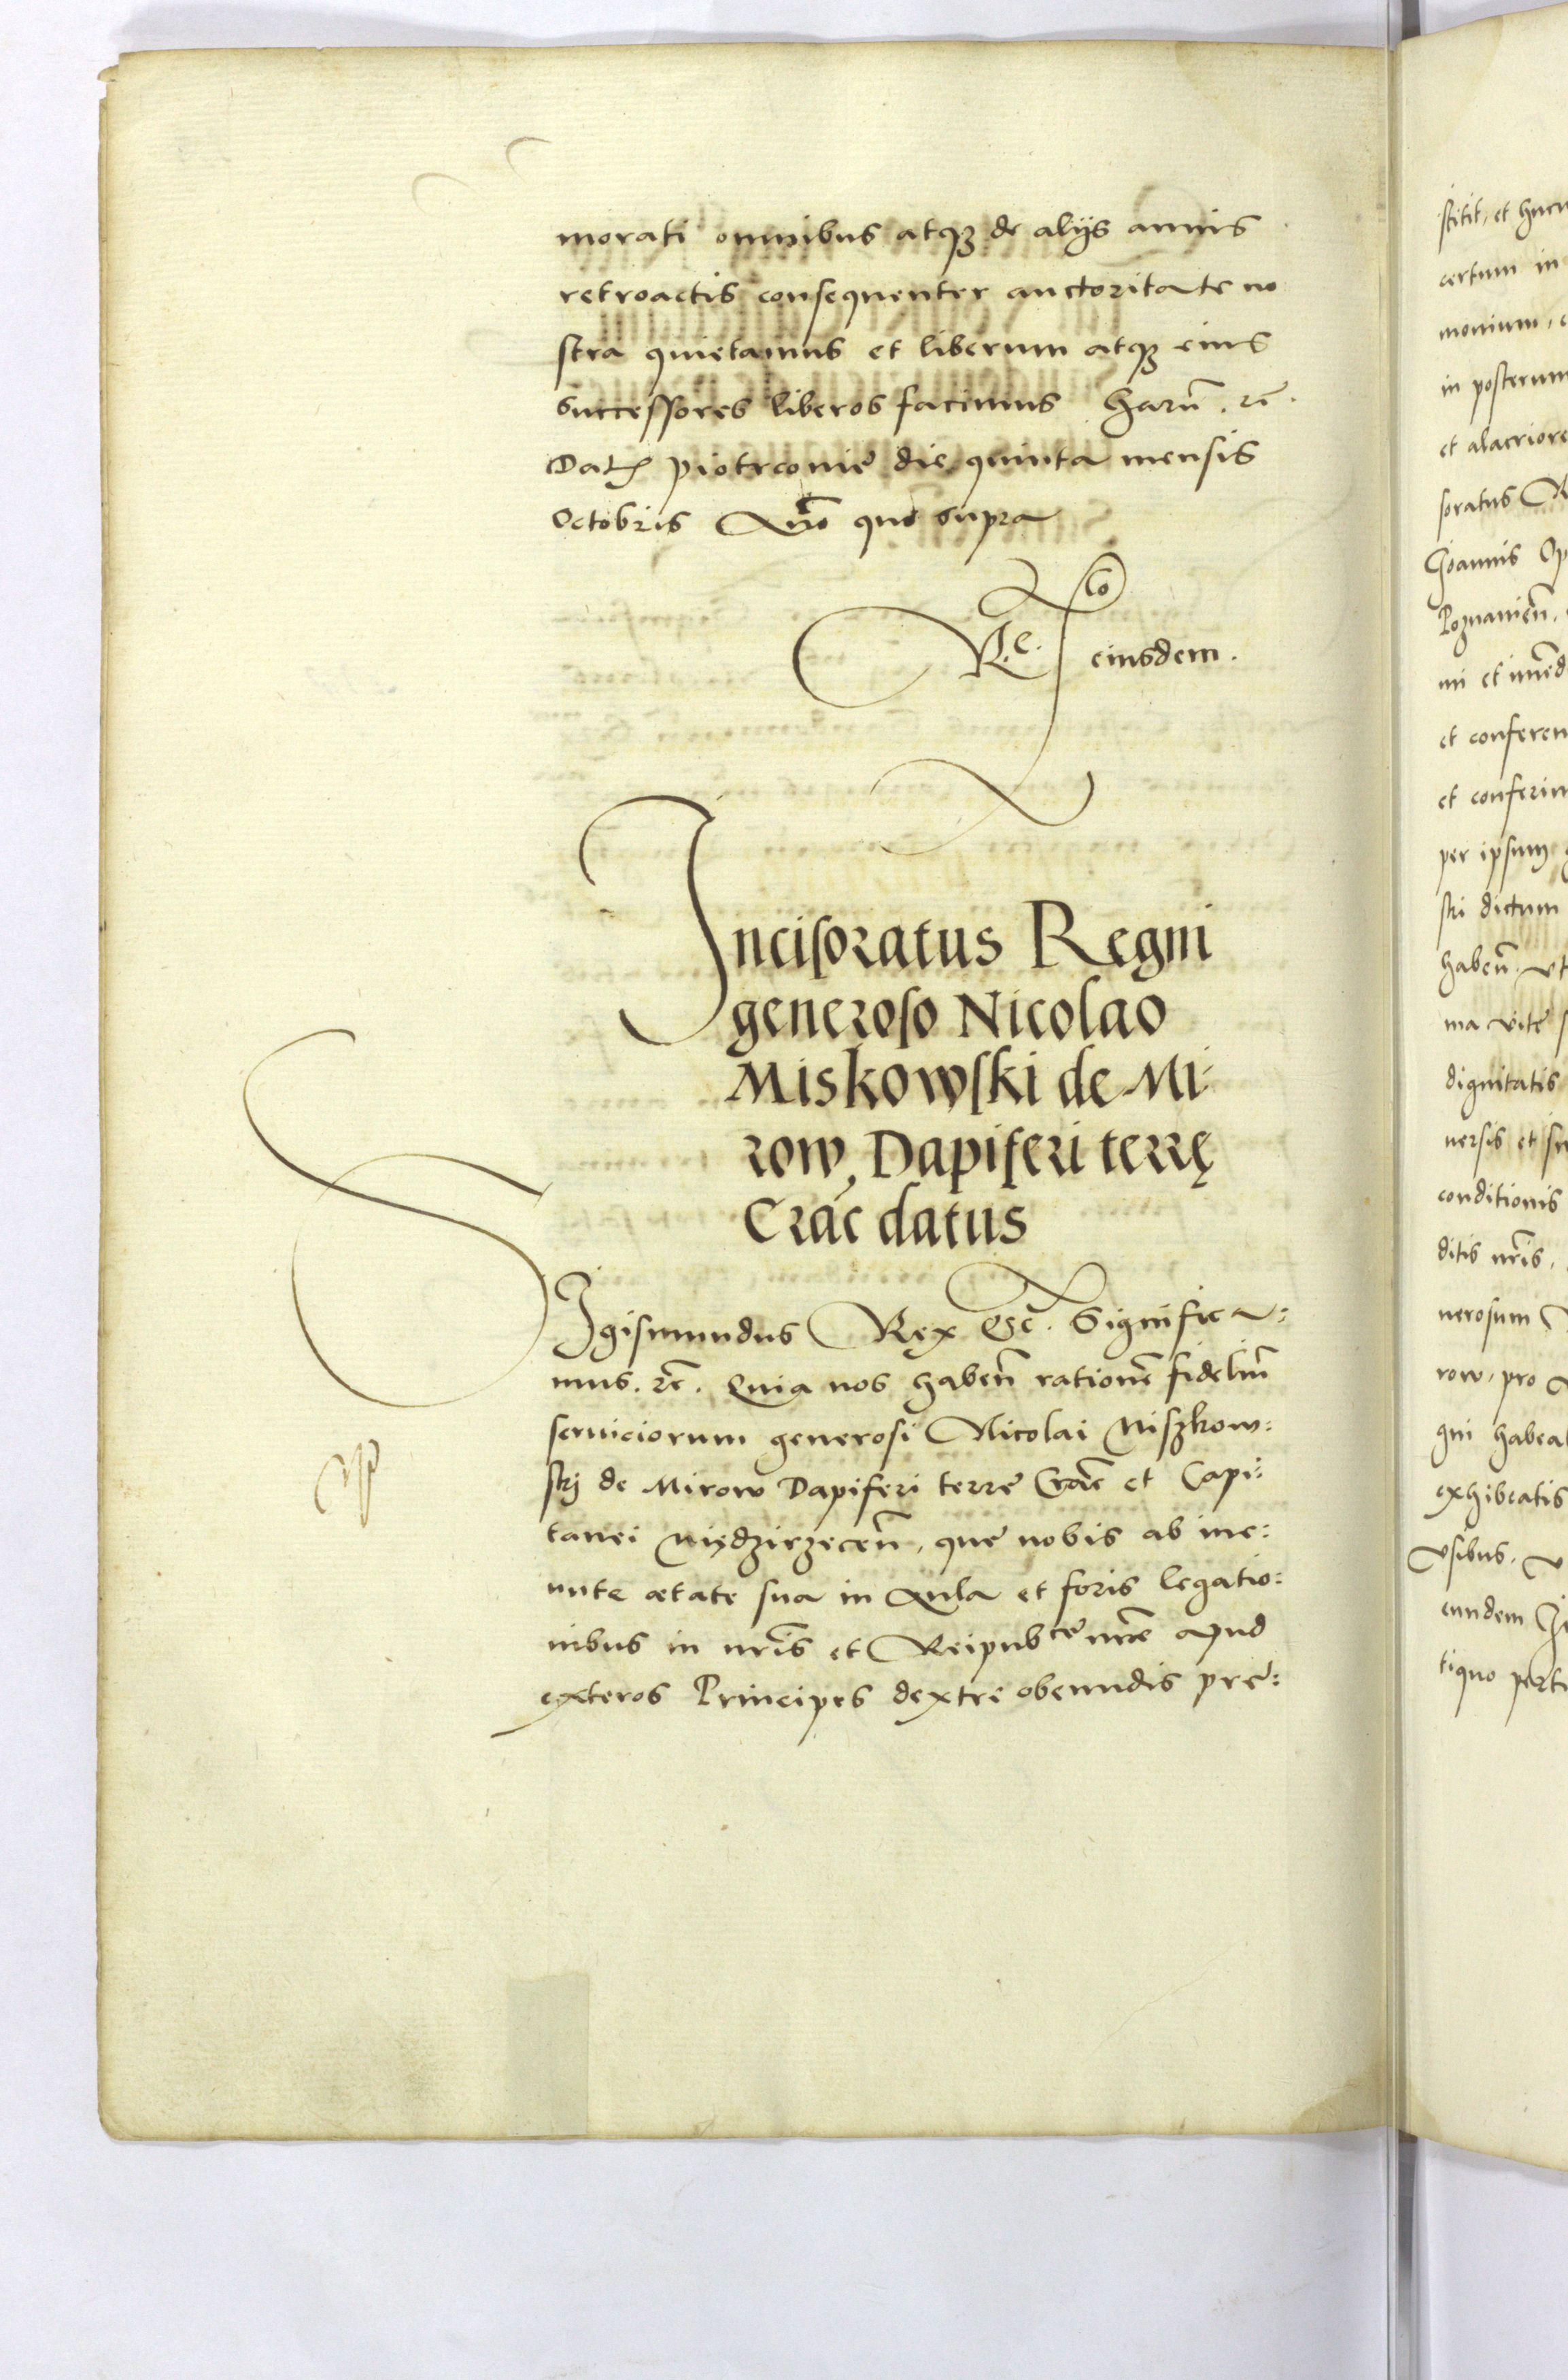 morati omnibus atqz de alijs annis
retroactis consequenter auctoritate no
stra quietamus et liberum atqz eius
successores liberos facimus Harū. rē.
Dat piotrconie die quinta mensis
Octobris Año quo supra
R.e. eiusdem.
Incisoratus Regni
generoso Nicolao
Miskowski de Mi:
row, Dapiferi terrę
Crac datus
SIgismundus Rex etc. Significa:
mus. rē. Quia nos habeñ rationē fideliū
seruiciorum generosi Nicolai Miszkow:
skj de Mirow Dapiferi terre Crac̄ et Capi:
tanei Międzirzeceñ, que nobis ab ine:
unte ætate sua in Aula et foris legatio:
nibus in nr̄is et Reipubce nr̄æ apud
exteros Principes dextre obeundis pre:
stitit, et hucu
certum in
monium, e
in posterum
et alacriore
soratus
Joannis Op
Poznanieñ,
ni et im̄ed
et conferen
et conferim
per ipsum
stri dictum
habeñ vt
ma vite
dignitatis
uersis et
conditionis
ditis nr̄is,
nerosum
row, pro
gni habea
exhibeatis
vsibus,
eundem
tiquo